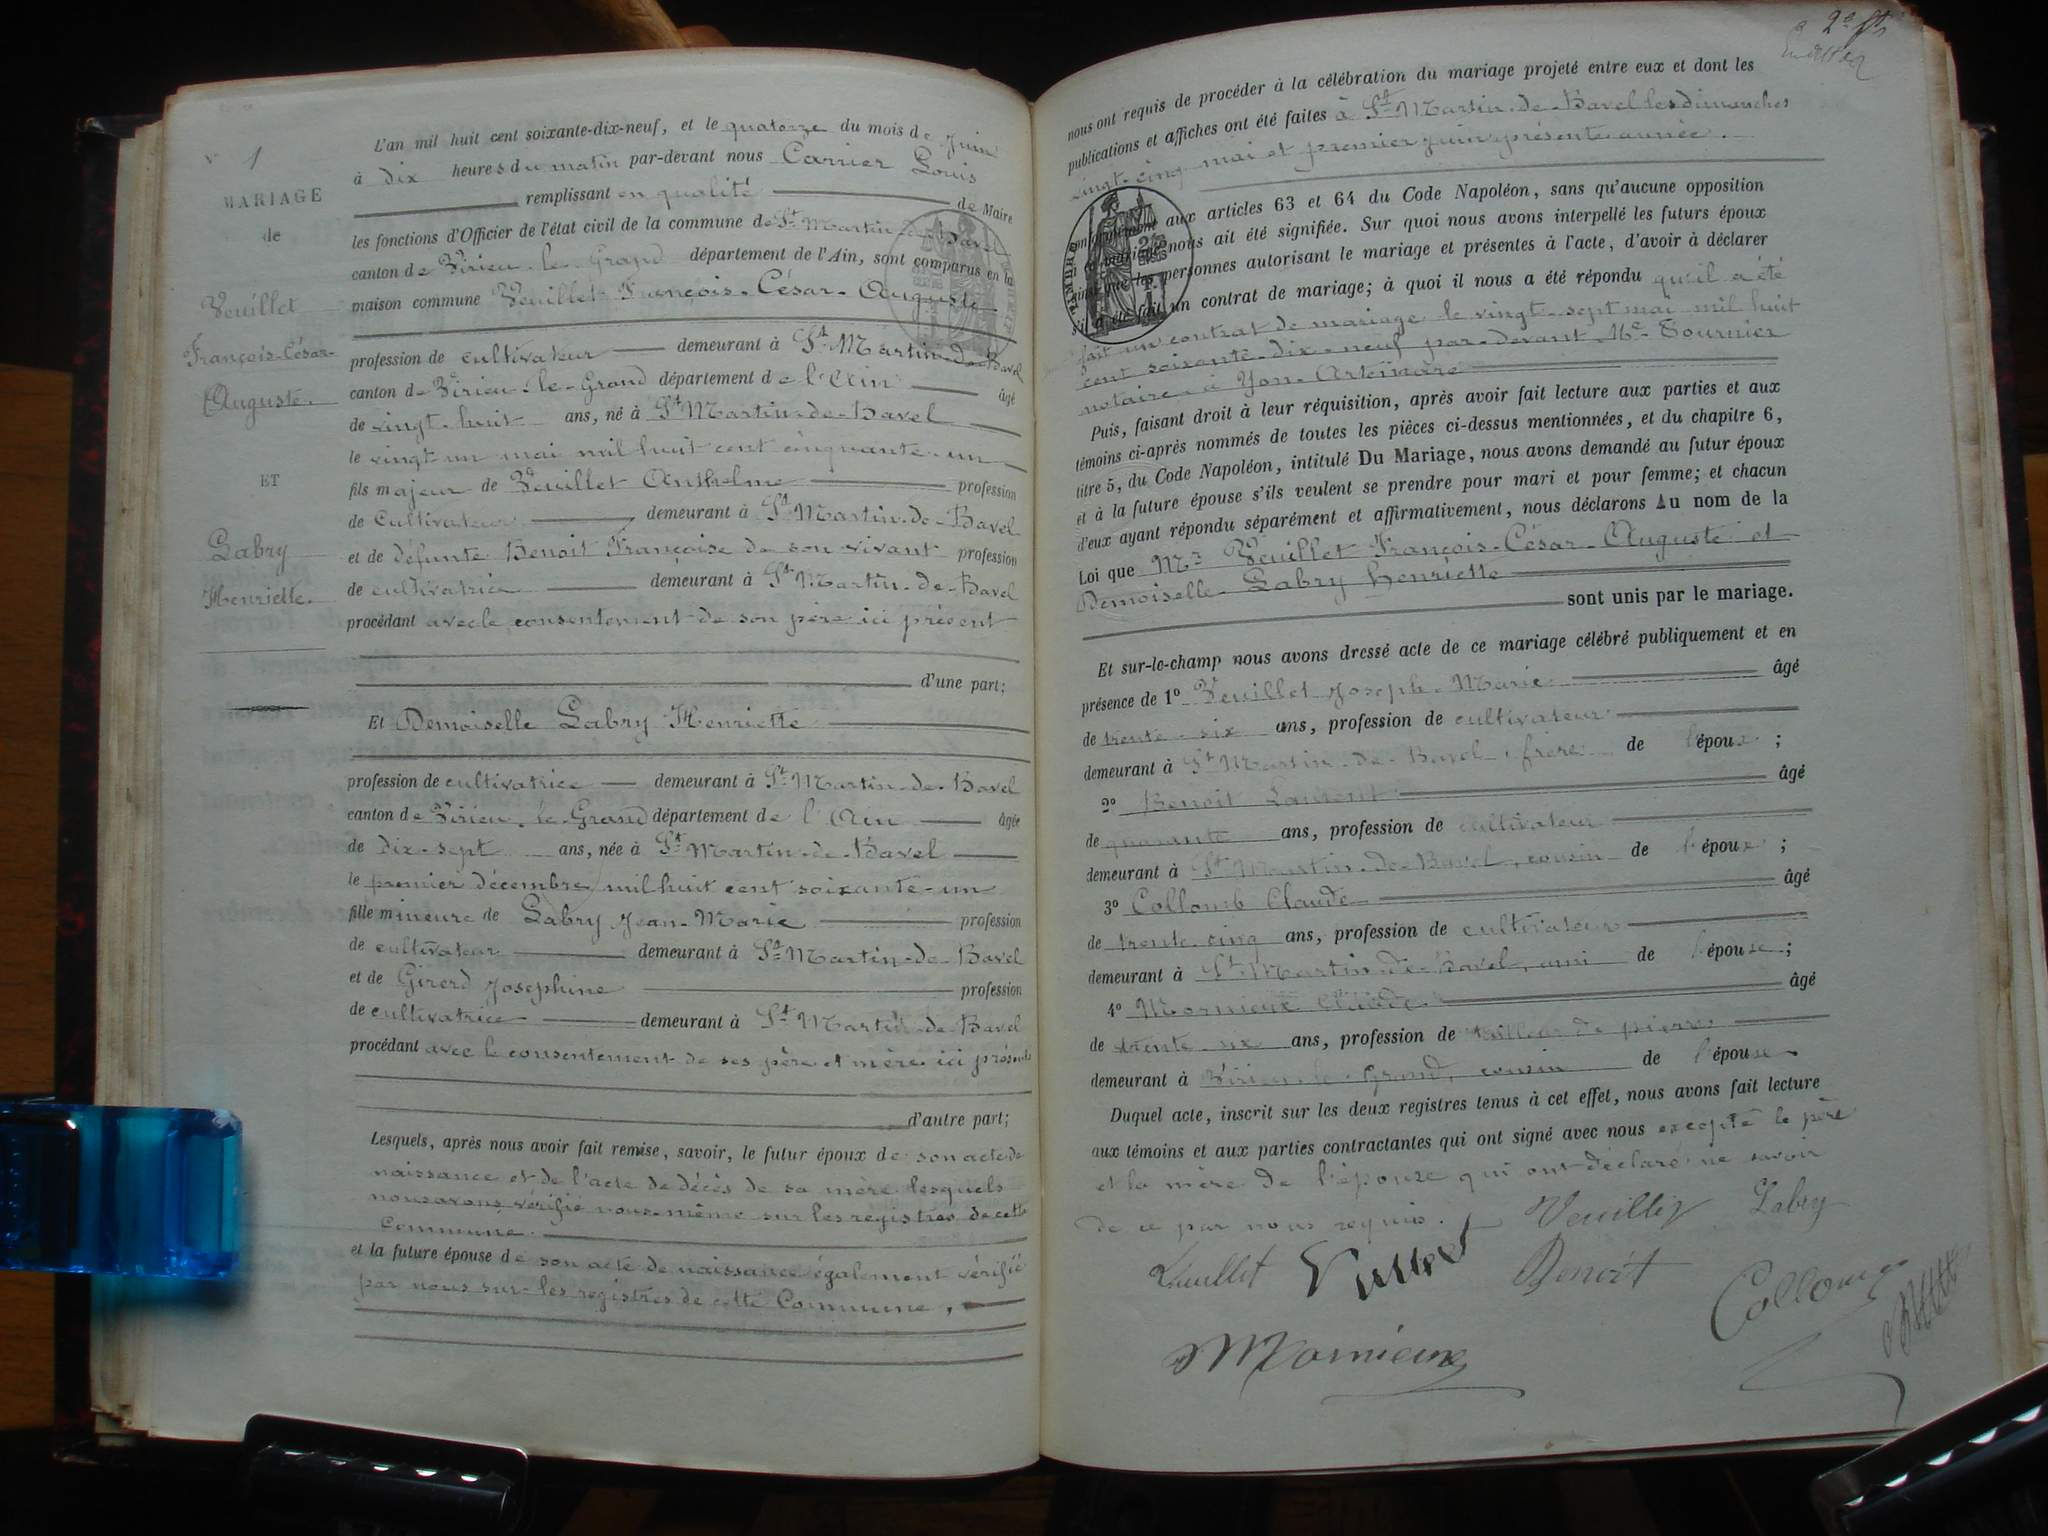 N° 1
MARIAGE
de
Veuillet
François-César-
Auguste.
ET
Labry
Henriette.
L'an mil huit cent soixante-dix-neuf, et le quatorze du mois de Juin
à dix heures du matin par-devant nous Carrier Louis
remplissant en qualité de Maire
les fonctions d'Officier de l'état civil de la commune de St Martin-de-Bavel
canton de Virieu-le-Grand département de l'Ain, sont comparus en la
maison commune Veuillet François-César-Auguste
profession de cultivateur demeurant à St Martin-de-Bavel
canton de Virieu-le-Grand département de l'Ain âgé
de vingt-huit ans, né à St Martin-de-Bavel
le vingt un mai mil huit cent cinquante-un
fils majeur de Veuillet Anthelme profession
de Cultivateur demeurant à St Martin-de-Bavel
et de défunte Benoit Françoise de son vivant profession
de cultivatrice demeurant à St Martin-de-Bavel
procédant avec le consentement de son père ici présent
d'une part;
Et Demoiselle Labry Henriette
profession de cultivatrice demeurant à St Martin-de-Bavel
canton de Virieu-le-Grand département de l'Ain âgée
de dix-sept ans, née à St Martin-de-Bavel
le premier décembre mil huit cent soixante-un
fille mineure de Labry Jean-Marie profession
de cultivateur demeurant à St Martin-de-Bavel
et de Girerd Josephine profession
de cultivatrice demeurant à St Martin-de-Bavel
procédant avec le consentement de ses père et mère ici présents
d'autre part;
Lesquels, après nous avoir fait remise, savoir, le futur époux de son acte de
naissance et de l'acte de décès de sa mère lesquels
nous avons vérifié nous-même sur les registres de cette
Commune.
et la future épouse de son acte de naissance également vérifié
par nous sur les registres de cette Commune,
nous ont requis de procéder à la célébration du mariage projeté entre eux et dont les
publications et affiches ont été faites à St Martin-de-Bavel les dimanches
vingt-cinq mai et premier juin présente année.
conformément aux articles 63 et 64 du Code Napoléon, sans qu'aucune opposition
à ce mariage nous ait été signifiée. Sur quoi nous avons interpellé les futurs époux
ainsi que les personnes autorisant le mariage et présentes à l'acte, d'avoir à déclarer
s'il a été fait un contrat de mariage; à quoi il nous a été répondu qu'il a été
fait un contrat de mariage le vingt-sept mai mil huit
cent soixante-dix-neuf par-devant Me Tournier
notaire à Yon-Artemare
Puis, faisant droit à leur réquisition, après avoir fait lecture aux parties et aux
témoins ci-après nommés de toutes les pièces ci-dessus mentionnées, et du chapitre 6,
titre 5, du Code Napoléon, intitulé Du Mariage, nous avons demandé au futur époux
et à la future épouse s'ils veulent se prendre pour mari et pour femme; et chacun
d'eux ayant répondu séparément et affirmativement, nous déclarons Au nom de la
Loi que Mr Veuillet François-César-Auguste et
Demoiselle Labry Henriette
sont unis par le mariage.
Et sur-le-champ nous avons dressé acte de ce mariage célébré publiquement et en
présence de 1° Veuillet Joseph-Marie âgé
de trente-six ans, profession de cultivateur
demeurant à St Martin-de-Bavel, frère de l'époux;
2° Benoit Laurent âgé
de quarante ans, profession de cultivateur
demeurant à St Martin-de-Bavel, cousin de l'époux;
3° Collomb Claude âgé
de trente-cinq ans, profession de cultivateur
demeurant à St Martin-de-Bavel, ami de l'épouse;
4° Mornieux Claude âgé
de trente ans, profession de tailleur de pierres
demeurant à Virieu-le-Grand, cousin de l'épouse
Duquel acte, inscrit sur les deux registres tenus à cet effet, nous avons fait lecture
aux témoins et aux parties contractantes qui ont signé avec nous excepté le père
et la mère de l'épouse qui ont déclaré ne savoir
de ce par nous requis. Veuillet Labry
Veuillet Veuillet Benoit Collomb
Mornieux